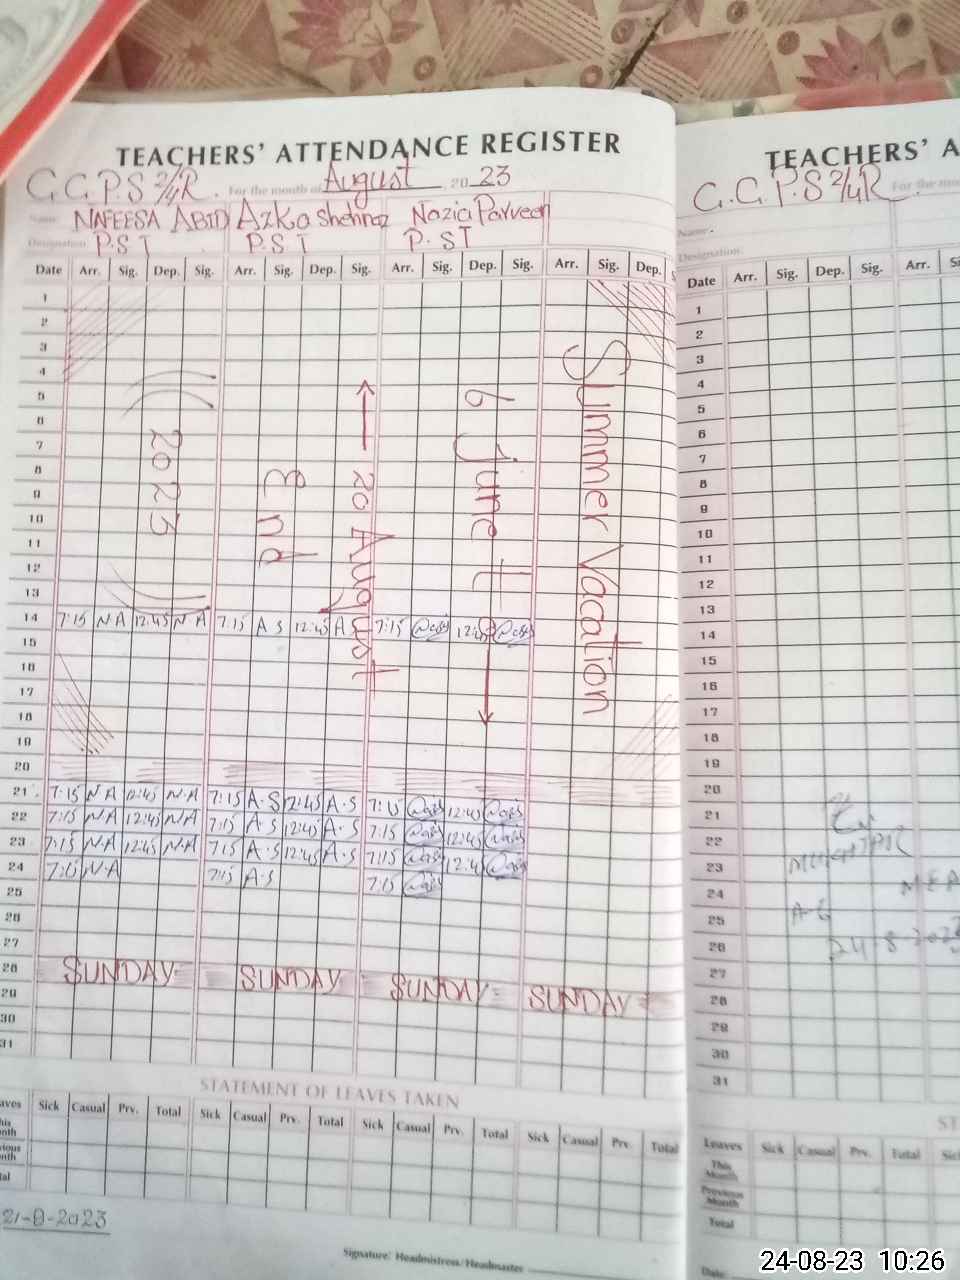 TEACHERS' ATTENDANCE REGISTER
G.G.P.S 2/4R. For the month of August 2023
Name: NAFEESA ABID Azka Shehnaz Nazia Parveen
Designation: P.S.T P.S.T P.ST
Date Arr. Sig. Dep. Sig. Arr. Sig. Dep. Sig. Arr. Sig. Dep. Sig. Arr. Sig. Dep. S
1
2
3
4
5
6
7
8
9
10
11
12
13
14 7:15 NA 12:45 N A 7:15 A S 12:45 A 7:15 12:45
15
16
17
18
19
20
21 7:15 NA 12:45 N.A 7:15 A.S 12:45 A.S 7:15 12:45
22 7:15 NA 12:45 NA 7:15 A.S 12:45 A.S 7:15 12:45
23 7:15 NA 12:45 N.A 7:15 A.S 12:45 A.S 7:15 12:45
24 7:15 N.A 7:15 A.S 7:15
25
26
27
28 SUNDAY SUNDAY SUNDAY SUNDAY
29
30
31
Summer Vacation
6 June t
20 August
End
2023
STATEMENT OF LEAVES TAKEN
aves Sick Casual Prv. Total Sick Casual Prv. Total Sick Casual Prv. Total Sick Casual Prv. Total
his
onth
vious
onth
tal
21-8-2023
Signature/ Headmistress/Headmaster
TEACHERS' A
G.G.P.S 2/4R For the mo
Name.
Designation:
Date Arr. Sig. Dep. Sig. Arr. Si
1
2
3
4
5
6
7
8
9
10
11
12
13
14
15
16
17
18
19
20
21
22
23
24
25
26
27
28
29
30
31
MUKHTAR
A-E
24-8-2023
ST
Leaves Sick Casual Prv. Total Sic
This
Month
Previous
Month
Total
Date
24-08-23 10:26